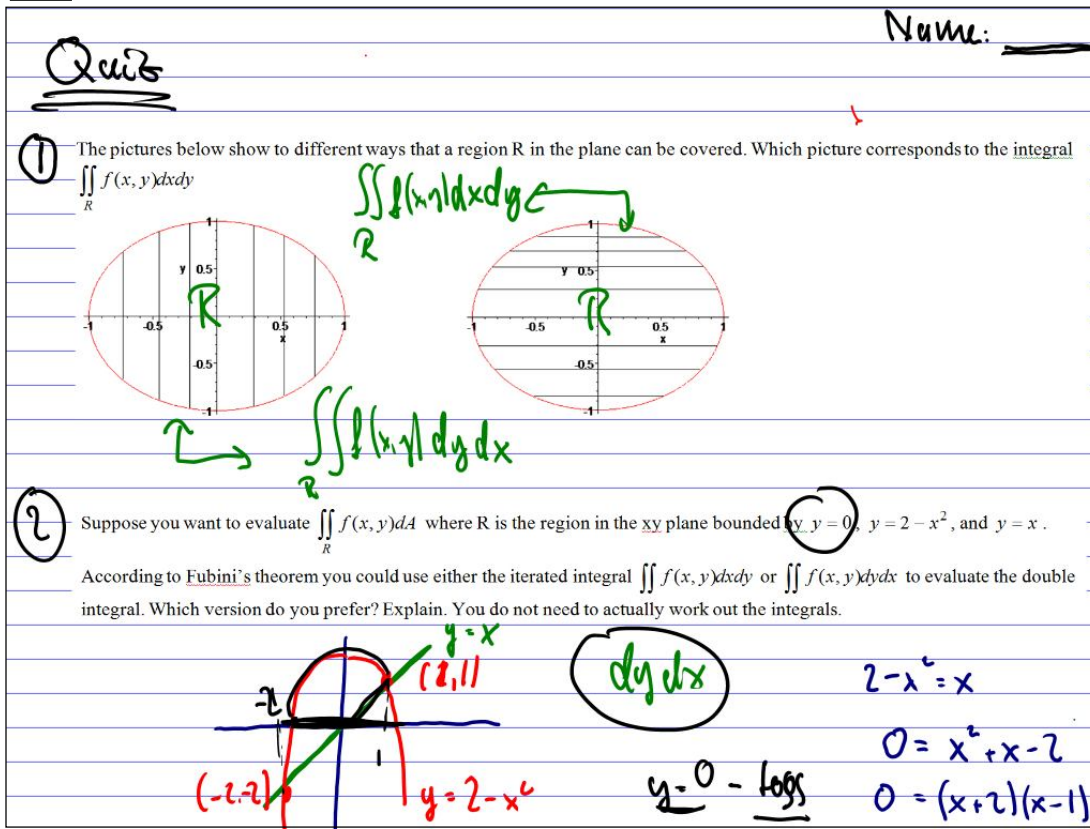 Name:
Quiz
① The pictures below show to different ways that a region R in the plane can be covered. Which picture corresponds to the integral
∬_R f(x, y)dxdy
∬_R f(x,y)dxdy
1 y 0.5 R -1 -0.5 0.5 1 x -0.5 -1
1 y 0.5 R -1 -0.5 0.5 1 x -0.5 -1
∬_R f(x,y) dy dx
② Suppose you want to evaluate ∬_R f(x, y)dA where R is the region in the xy plane bounded by y = 0, y = 2 − x², and y = x.
According to Fubini's theorem you could use either the iterated integral ∬ f(x, y)dxdy or ∬ f(x, y)dydx to evaluate the double
integral. Which version do you prefer? Explain. You do not need to actually work out the integrals.
y = x
(1,1)
-2
1
(-2,-2)
y = 2-x²
dy dx
y=0 -
2-x² = x
0 = x²+x-2
0 = (x+2)(x-1)